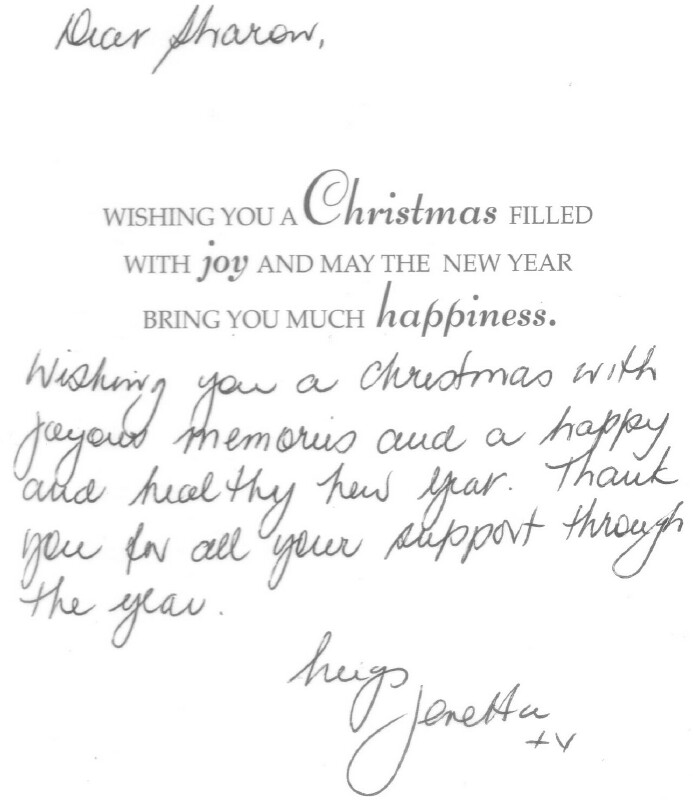 Dear Sharon,
WISHING YOU A Christmas FILLED
WITH joy AND MAY THE NEW YEAR
BRING YOU MUCH happiness.
Wishing you a Christmas with
joyous memories and a happy
and healthy new year. Thank
you for all your support through
the year.
hugs
Jenetta